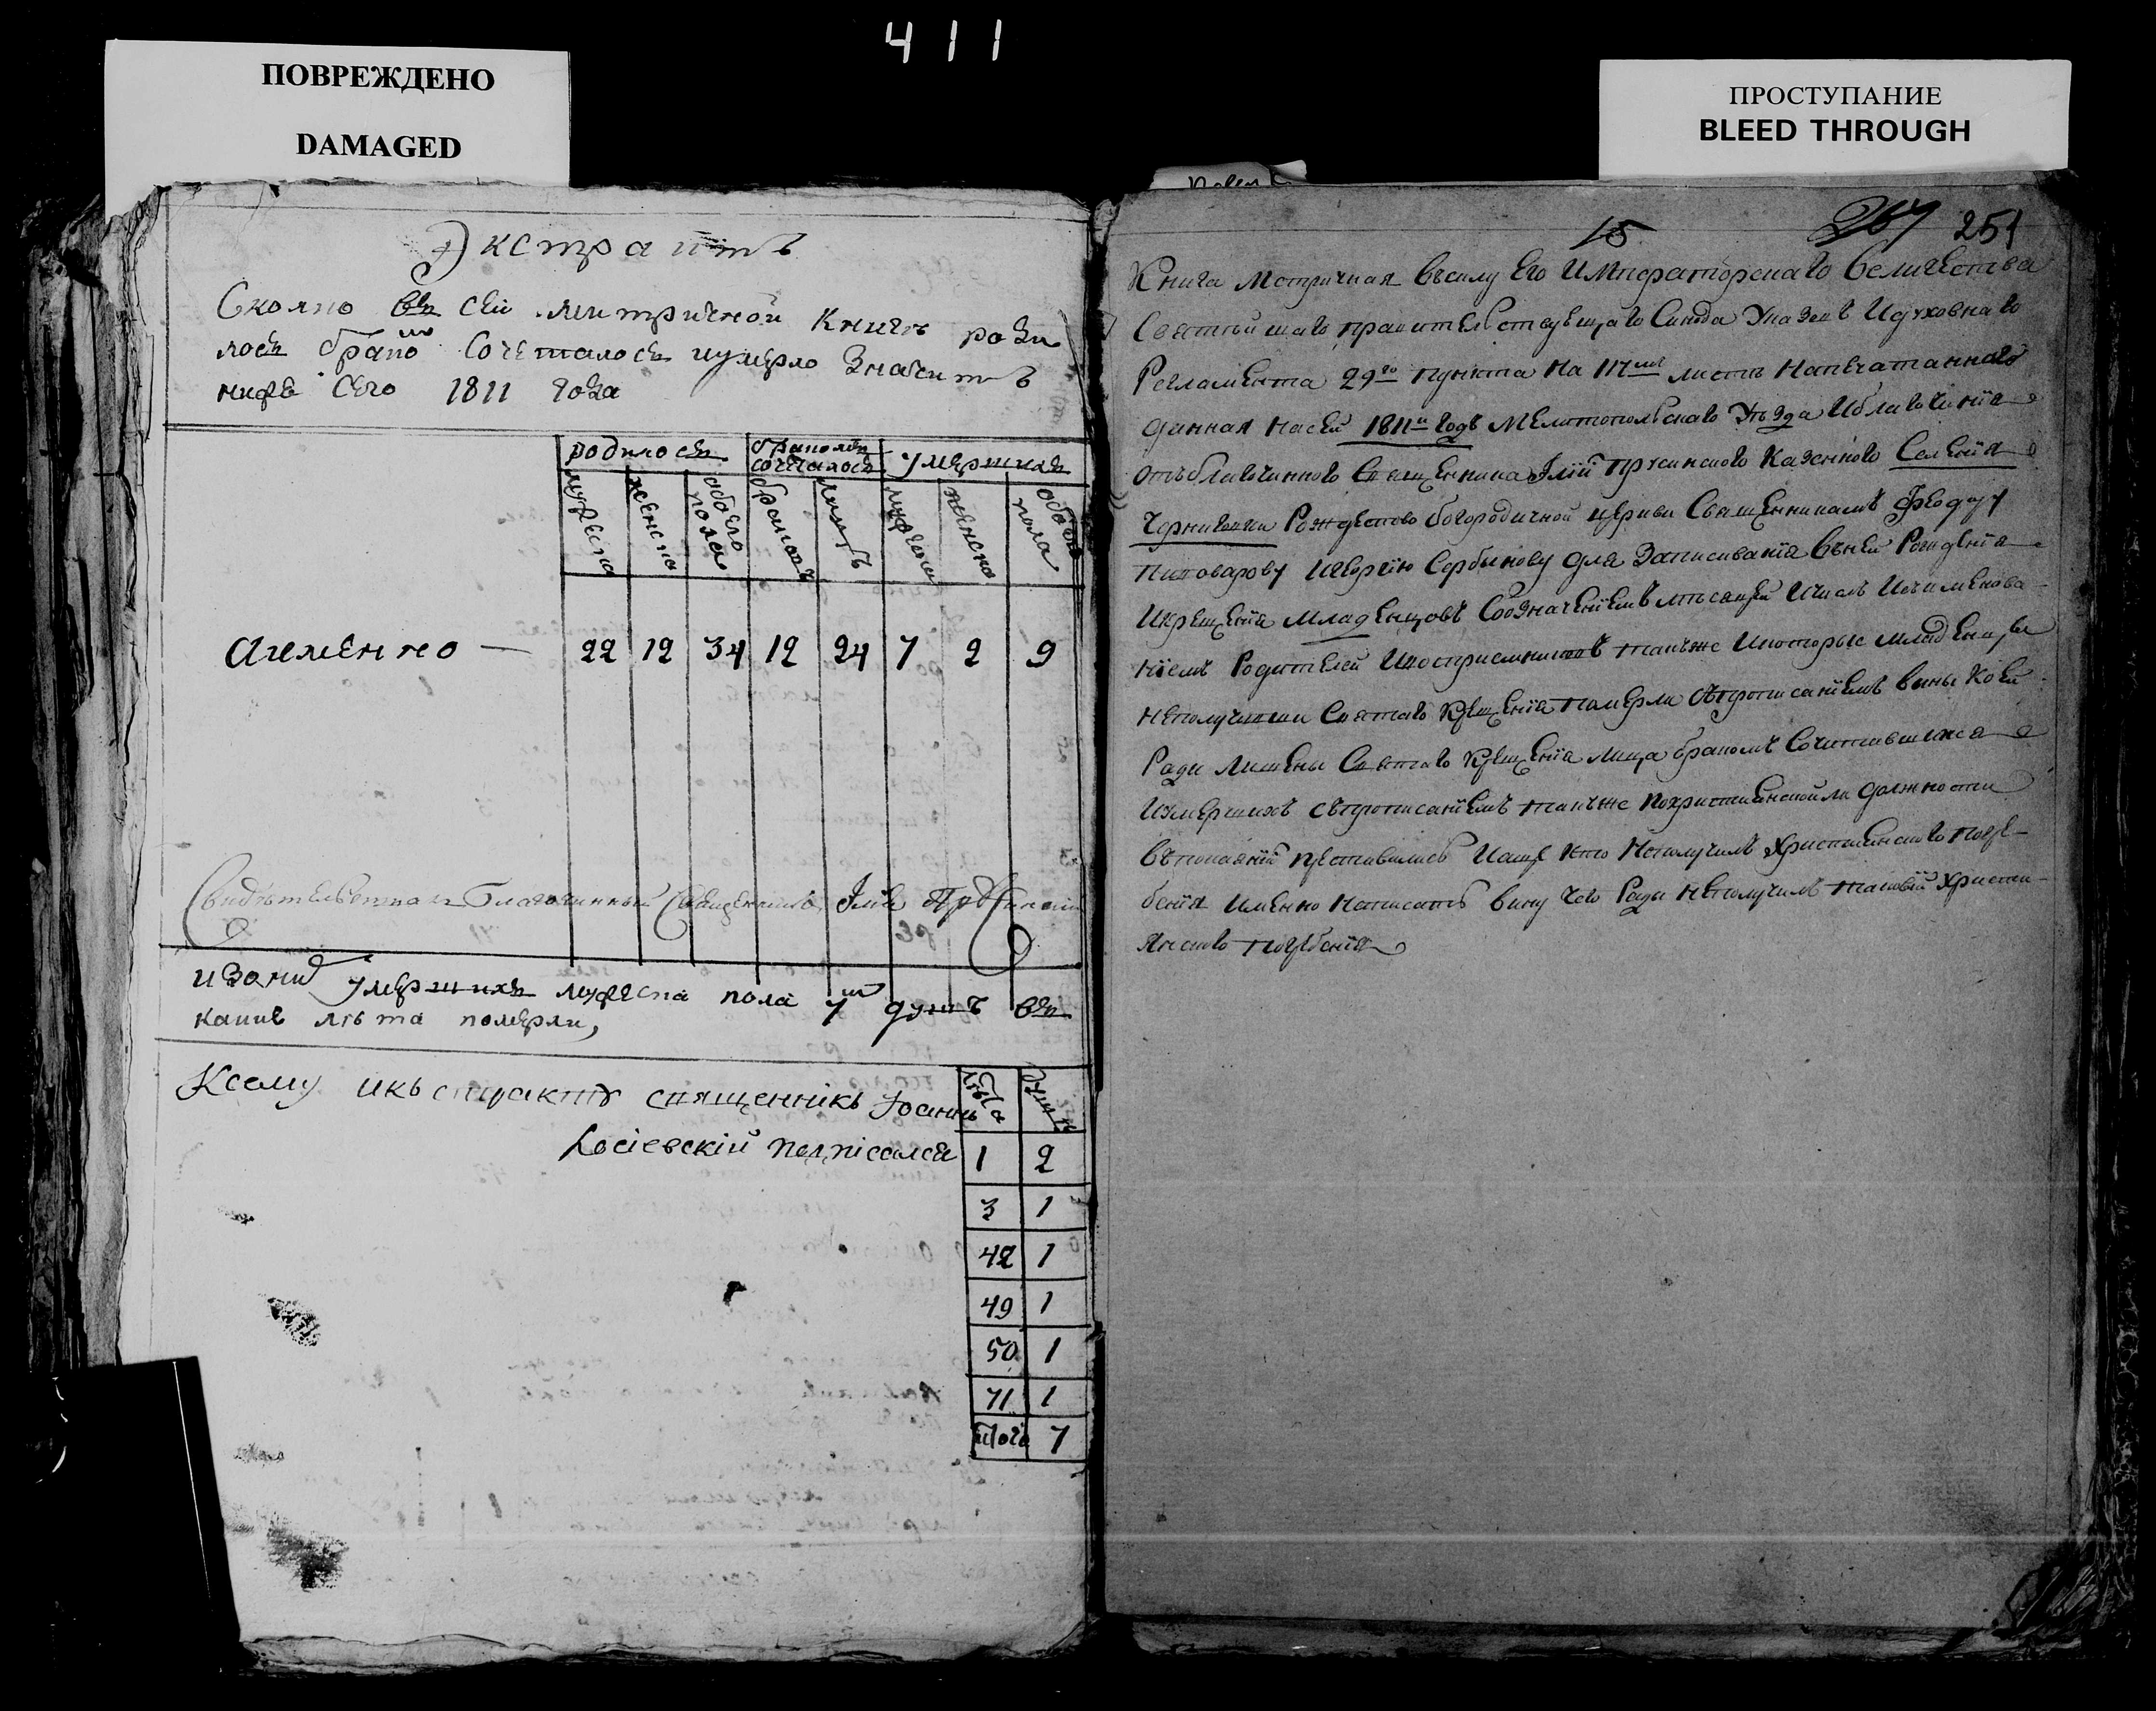 411
ПОВРЕЖДЕНО
DAMAGED
ПРОСТУПАНИЕ
BLEED THROUGH
Экстрактъ
Сколко въ сей метричной книги роди
лось бракомъ сочеталось иумерло значитъ
ниже сего 1811 года
родилось
бракомъ сочеталось
умершихъ
мужеска
женска
обоего пола
браковъ
лицъ
мужеска
женска
обоего пола
Аименно — 22 12 34 12 24 7 2 9
Свидетельствовалъ Благочинный Священникъ Илiя
изоныхъ умершихъ мужеска пола 7 душъ въ
какие лѣта померли,
Ксему икъстракту священникъ Iоаннъ
Косiевскiй подписался
лѣта душъ
1 2
3 1
42 1
49 1
50 1
71 1
Итого 7
15 267 251
Книга Метричная Въсилу Его Императорскаго Величества
Святѣйшаго правительствующаго Синода Указовъ Идуховнаго
Регламента 29го пункта На 117мъ листѣ Напечатаннаго
данная Насей 1811й годъ Мелитопольскаго Уѣзда Иблагочинiя
отъблагочиннаго Священника Iлiи Казеннаго Селенiя
Черниговки Рождество богородичной церкви Священникамъ Феодору
Пивоварову Игеоргiю Сербинову для Записыванiя Вънеи Рожденiя
Икрещенiя Младенцовъ Соозначенiемъ мѣсяцей Ичислъ Иименова
нiемъ Родителей Ивосприемниковъ такъже Икоторые младенцы
Неполучивши Святаго Крещенiя Померли Съпрописанiемъ вины Коей
Ради Лишены Святаго Крещенiя лица бракомъ Сочитавшихся
Иумершихъ съпрописанiемъ такъже Похристианской ли должности
Въпокаянiи преставились Иаще кто Неполучилъ Христианскаго погре
бенiя Именно Написать вину чего Ради Неполучилъ таковiй Христи
янскаго погребенiя